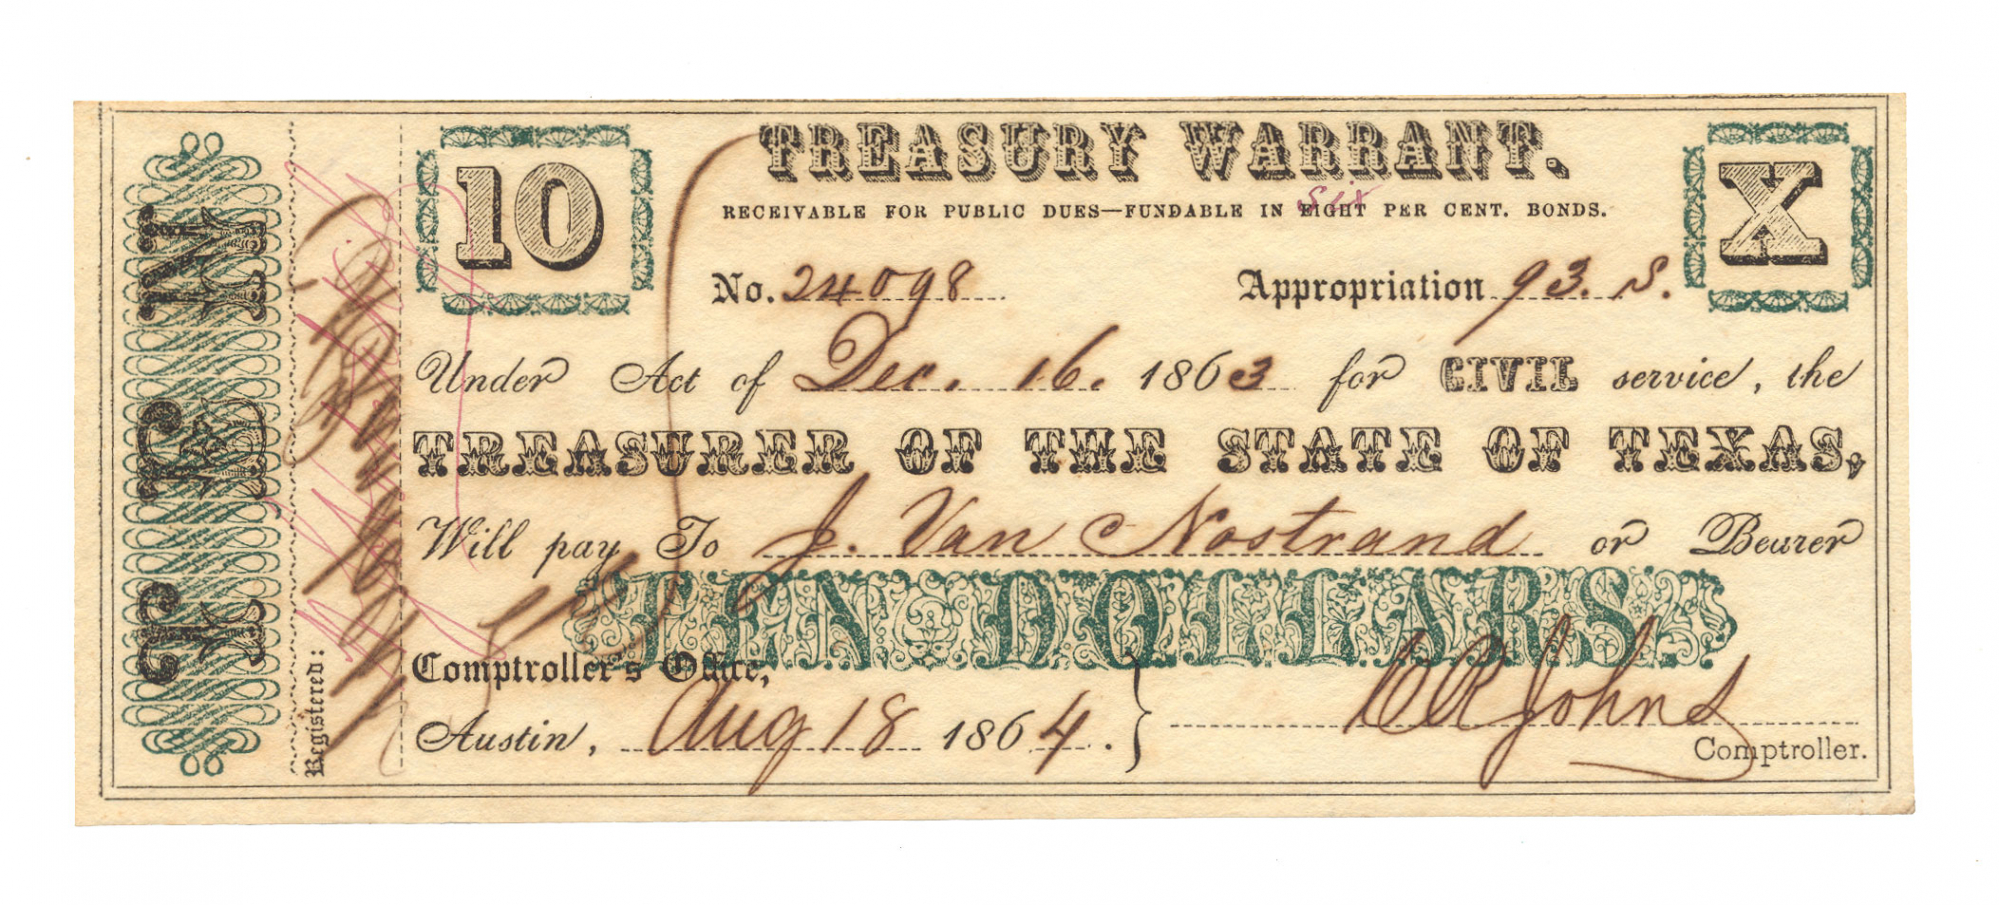 TEN
Registered:
10
TREASURY WARRANT.
X
six
RECEIVABLE FOR PUBLIC DUES—FUNDABLE IN EIGHT PER CENT. BONDS.
No. 24098 Appropriation 93. S.
Under Act of Dec. 16. 1863 for CIVIL service, the
TREASURER OF THE STATE OF TEXAS,
Will pay To J. Van Nostrand or Bearer
TEN DOLLARS
Comptroller's Office,
Austin, Aug 18 1864. } C R Johns
Comptroller.